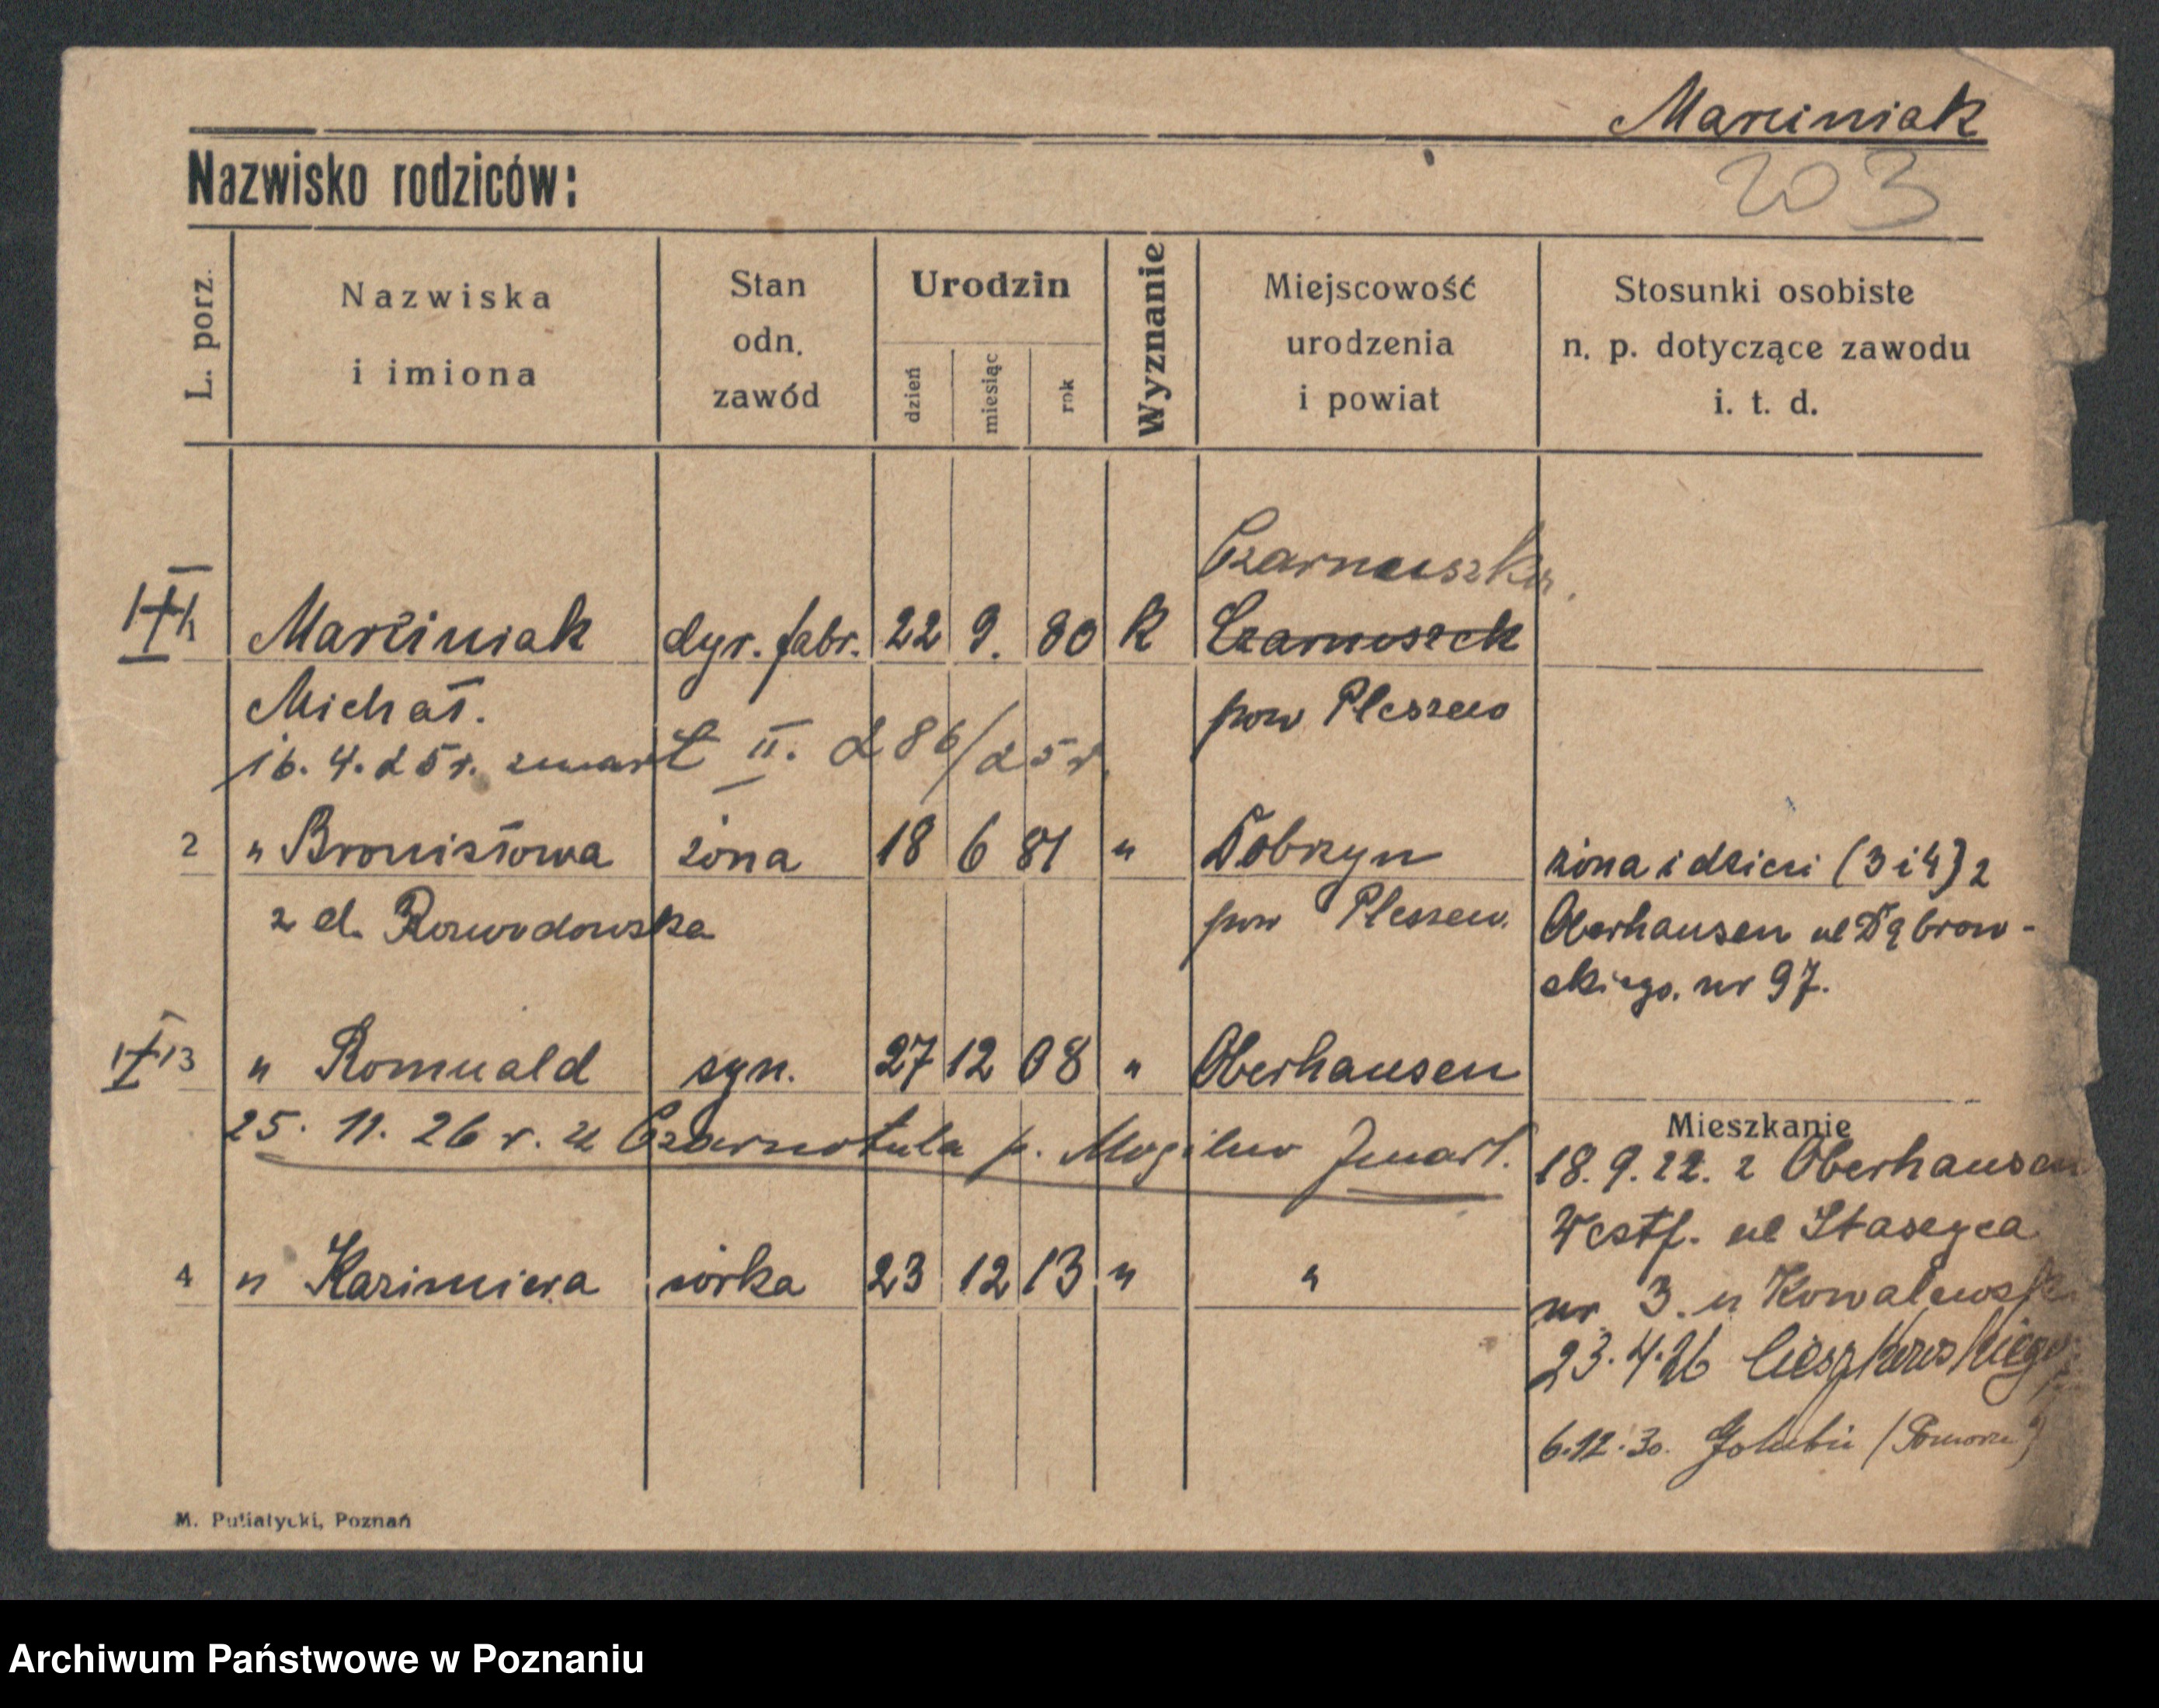 Marciniak
203
Nazwisko rodziców:
L. porz.
Nazwiska
i imiona
Stan
odn.
zawód
Urodzin
dzień
miesiąc
rok
Wyznanie
Miejscowość
urodzenia
i powiat
Stosunki osobiste
n. p. dotyczące zawodu
i. t. d.
Czarnuszka
Marciniak dyr. fabr. 22 9. 80 K Czarnuszek
Michał. pow Pleszew
16. 4. 25 r. zmarł II. 286/25 r.
2 " Bronisława żona 18 6 81 " Dobrzyn
z d. pow Pleszew.
żona i dzieci (3 i 4) z
Oberhausen ul Dąbrow-
skiego. nr 97.
13 " Romuald syn. 27 12 08 " Oberhausen
25. 11. 26 r. w Czarnotula p. Mogilno Zmarł.
4 " Kazimiera córka 23 12 13 " "
Mieszkanie
18. 9. 22. z Oberhausen
Westf. ul Staszyca
nr 3. u Kowalewsk
23. 4. 26 Cieszkowskiego
6. 12. 30. Golubia (Pomorze)
M. Putiatycki, Poznań
Archiwum Państwowe w Poznaniu